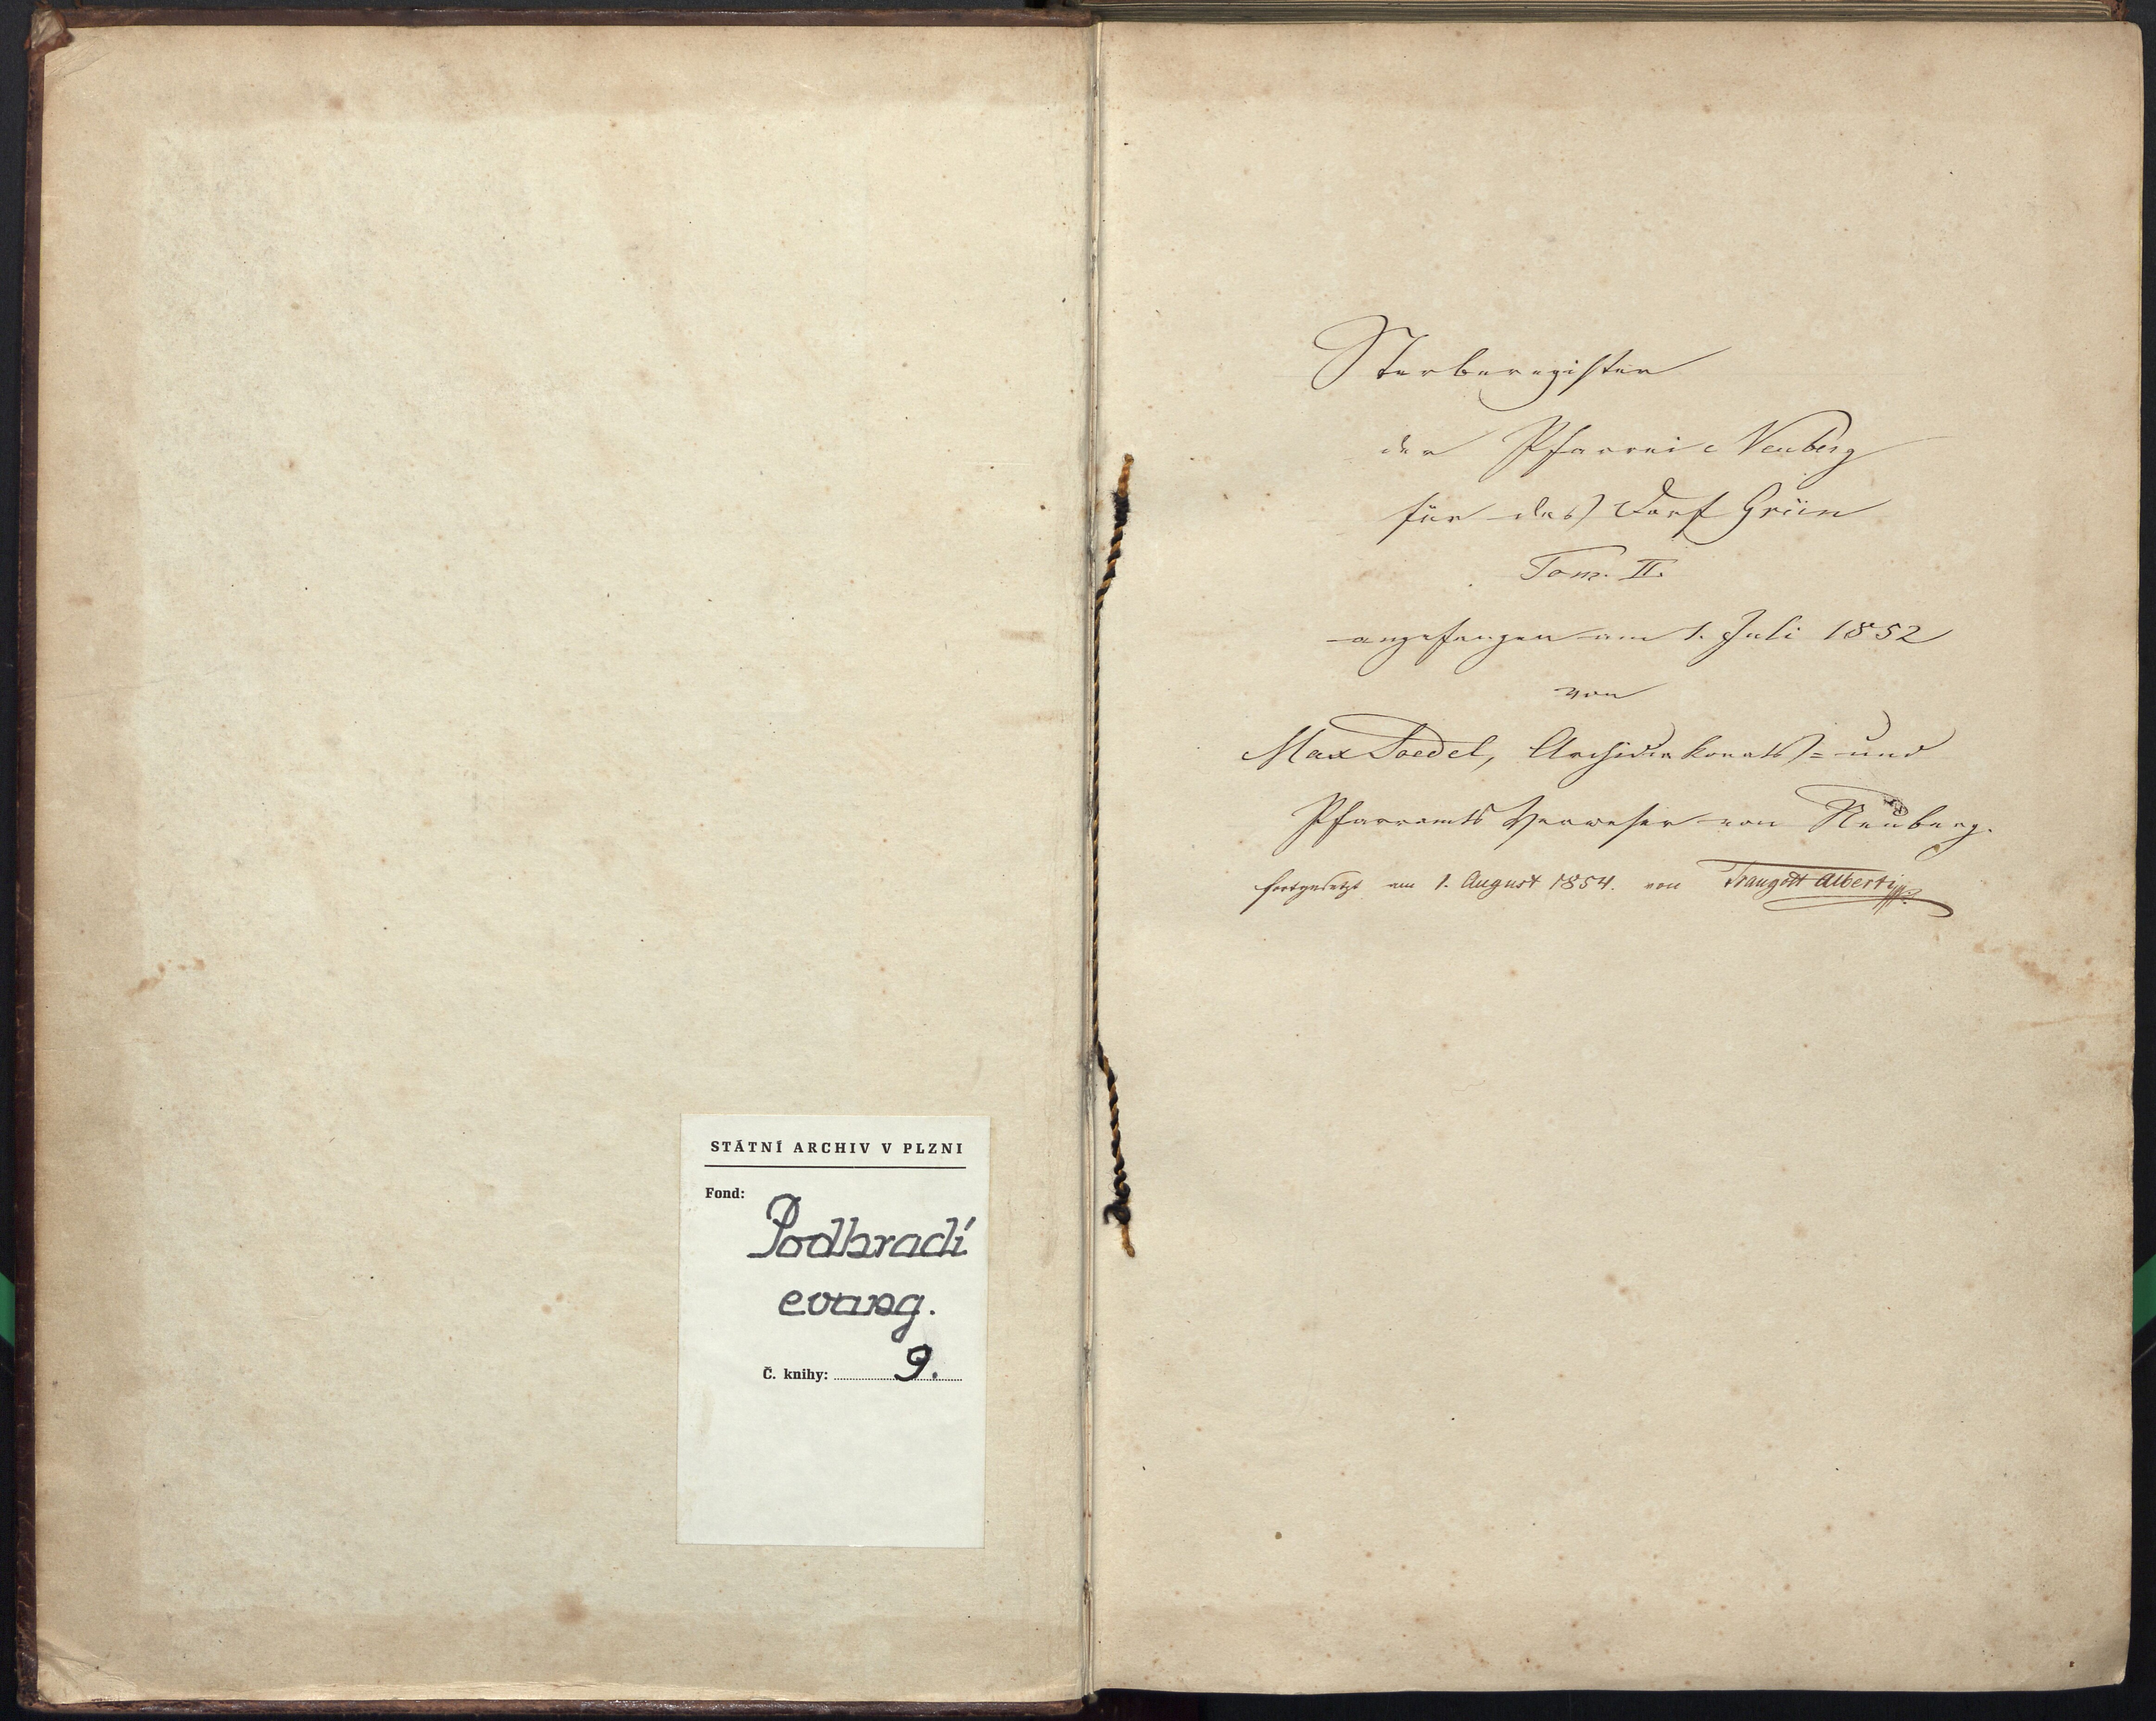 STÁTNÍ ARCHIV V PLZNI
Fond:
Podhradí
evang.
Č. knihy: 9.
Sterberegister
der Pfarrei Neuberg
für das Dorf Grün
Tom. II.
angefangen am 1. Juli 1852
von
Max Loedel, Archidiakonats- und
Pfarramts Verweser von Neuberg.
fortgesetzt am 1. August 1854. von Traugott Alberti